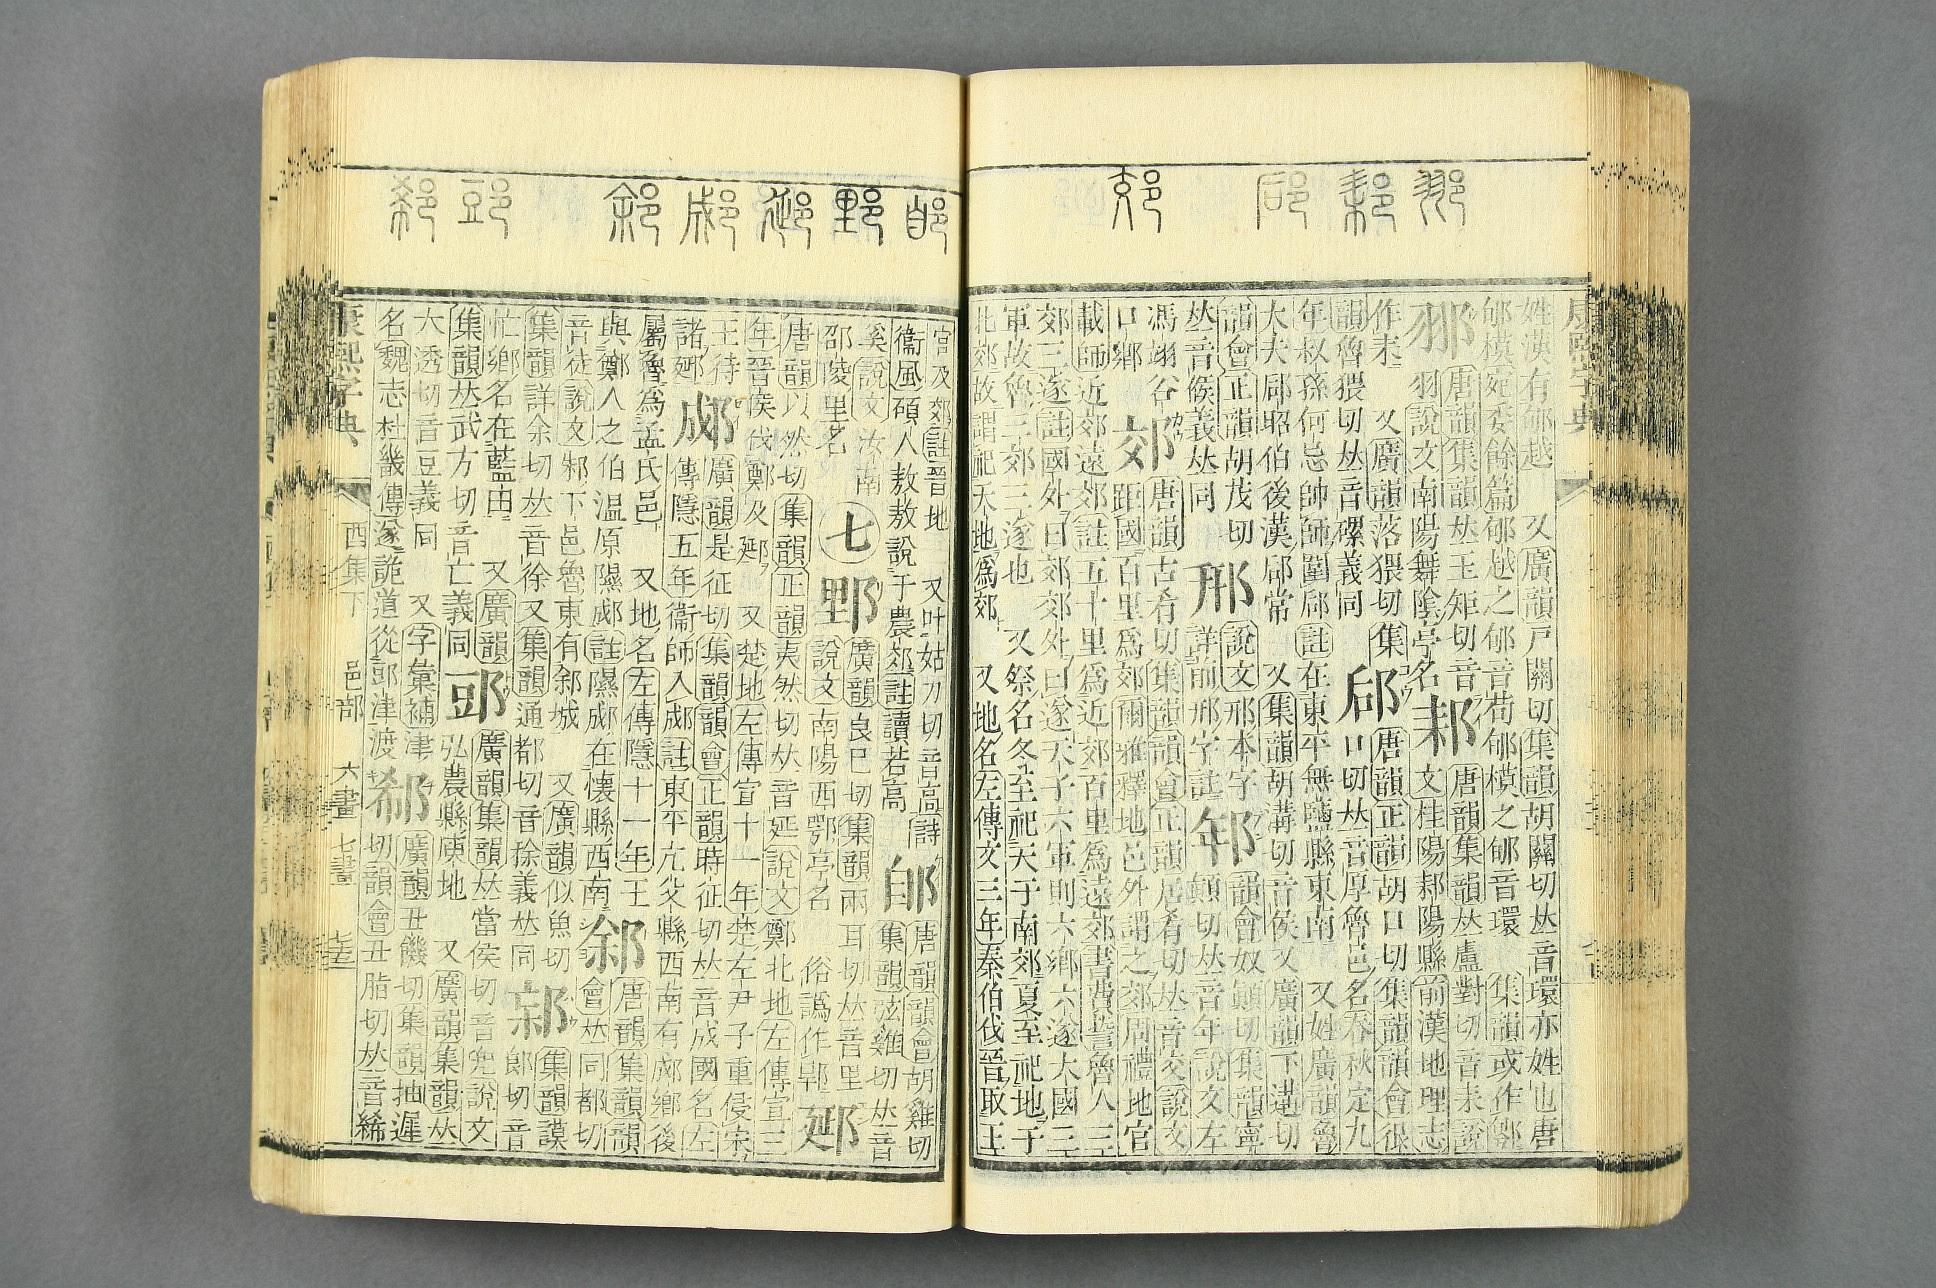 姓漢有郇越 又廣韻戸關切集韻胡關切𠀤音環亦姓也唐
郇模宛委餘篇郇越之郇音荀郇模之郇音環 集韻或作
唐韻集韻𠀤王矩切音
羽說文南陽舞陰亭名
唐韻集韻𠀤盧對切音耒說
文桂陽耒陽縣前漢地理志
作耒 又廣韻落猥切集
韻魯猥切𠀤音磥義同
郈
唐韻正韻胡口切集韻韻會很
口切𠀤音厚魯邑名春秋定九
年叔孫何忌帥師圍郈註在東平無鹽縣東南 又姓廣韻魯
大夫郈昭伯後漢郈常 又集韻胡溝切音侯又廣韻下遘切
韻會正韻胡茂切
𠀤音候義𠀤同
說文邢本字
詳前邢字註
韻會奴顚切集韻寧
顚切𠀤音年說文左
馮翊谷
口鄉
郊
唐韻古肴切集韻韻會正韻居肴切𠀤音交說文
距國百里爲郊爾雅釋地邑外謂之郊周禮地官
載師近郊遠郊註五十里爲近郊百里爲遠郊書費誓魯人三
郊三遂註國外曰郊郊外曰遂天子六軍則六鄕六遂大國三
軍故魯三郊三遂也 又祭名冬至祀天于南郊夏至祀地于
北郊故謂祀天地爲郊 又地名左傳文三年秦伯伐晉取王
宮及郊註晉地 又叶姑刀切音高詩
衞風碩人敖敖說于農郊註讀若高
郋
唐韻韻會胡雞切
集韻弦雞切𠀤音
奚說文汝南
邵陵里名
七
廣韻良已切集韻兩耳切𠀤音里
說文南陽西鄂亭名 俗譌作
郔
唐韻以然切集韻正韻夷然切𠀤音延說文鄭北地左傳宣三
年晉侯伐鄭及郔 又楚地左傳宣十一年楚左尹子重侵宋
王待
諸郔
郕
廣韻是征切集韻韻會正韻時征切𠀤音成國名左
傳隱五年衞師入郕註東平亢父縣西南有郕鄕後
屬魯爲孟氏邑 又地名左傳隱十一年王
與鄭人之伯溫原隰郕註隰郕在懷縣西南
唐韻集韻韻
會𠀤同都切
音徒說文邾下邑魯東有䣄城 又廣韻似魚切
集韻詳余切𠀤音徐又集韻通都切音稌義𠀤同
集韻謨
郎切音
忙鄉名在藍田 又廣韻
集韻𠀤武方切音亡義同
郖
廣韻集韻𠀤當侯切音兜說文
弘農縣庾地 又廣韻集韻𠀤
大透切音豆義同 又字彙補津
名魏志杜畿傳遂詭道從郖津渡
郗
廣韻丑饑切集韻抽遲
切韻會丑脂切𠀤音絺
康熙字典
酉集下
邑部
六畫
七畫